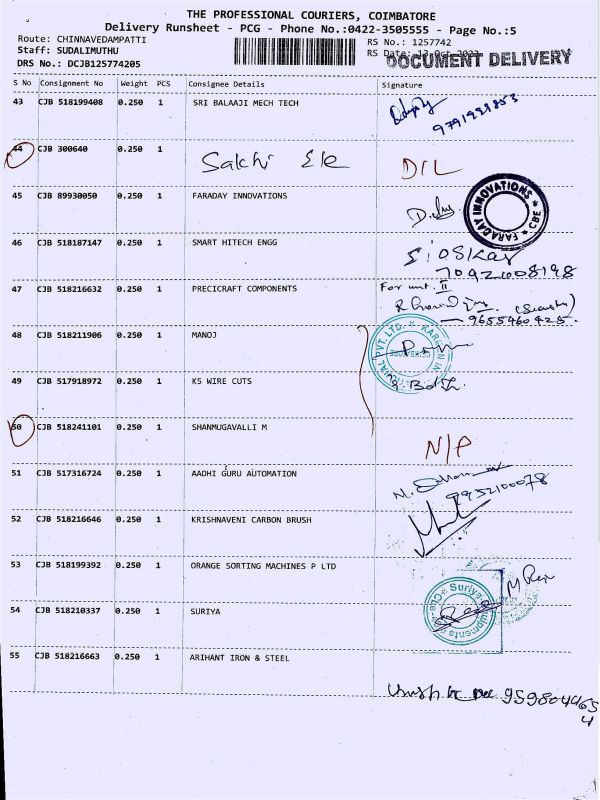 THE PROFESSIONAL COURIERS, COIMBATORE
Delivery Runsheet - PCG - Phone No.:0422-3505555 - Page No.:5
Route: CHINNAVEDAMPATTI
RS No.: 1257742
Staff: SUDALIMUTHU
RS Date:
DOCUMENT DELIVERY
DRS No.: DCJB125774205
S No Consignment No Weight PCS Consignee Details Signature
43 CJB 518199408 0.250 1 SRI BALAAJI MECH TECH
44 CJB 300640 0.250 1 Sakhi Ele D/L
45 CJB 89930050 0.250 1 FARADAY INNOVATIONS
FARADAY INNOVATIONS * CBE *
46 CJB 518187147 0.250 1 SMART HITECH ENGG
47 CJB 518216632 0.250 1 PRECICRAFT COMPONENTS For unit. II
9655460425.
48 CJB 518211906 0.250 1 MANOJ
49 CJB 517918972 0.250 1 KS WIRE CUTS
50 CJB 518241101 0.250 1 SHANMUGAVALLI M N/P
51 CJB 517316724 0.250 1 AADHI GURU AUTOMATION
9952100078
52 CJB 518216646 0.250 1 KRISHNAVENI CARBON BRUSH
53 CJB 518199392 0.250 1 ORANGE SORTING MACHINES P LTD
54 CJB 518210337 0.250 1 SURIYA
55 CJB 518216663 0.250 1 ARIHANT IRON & STEEL